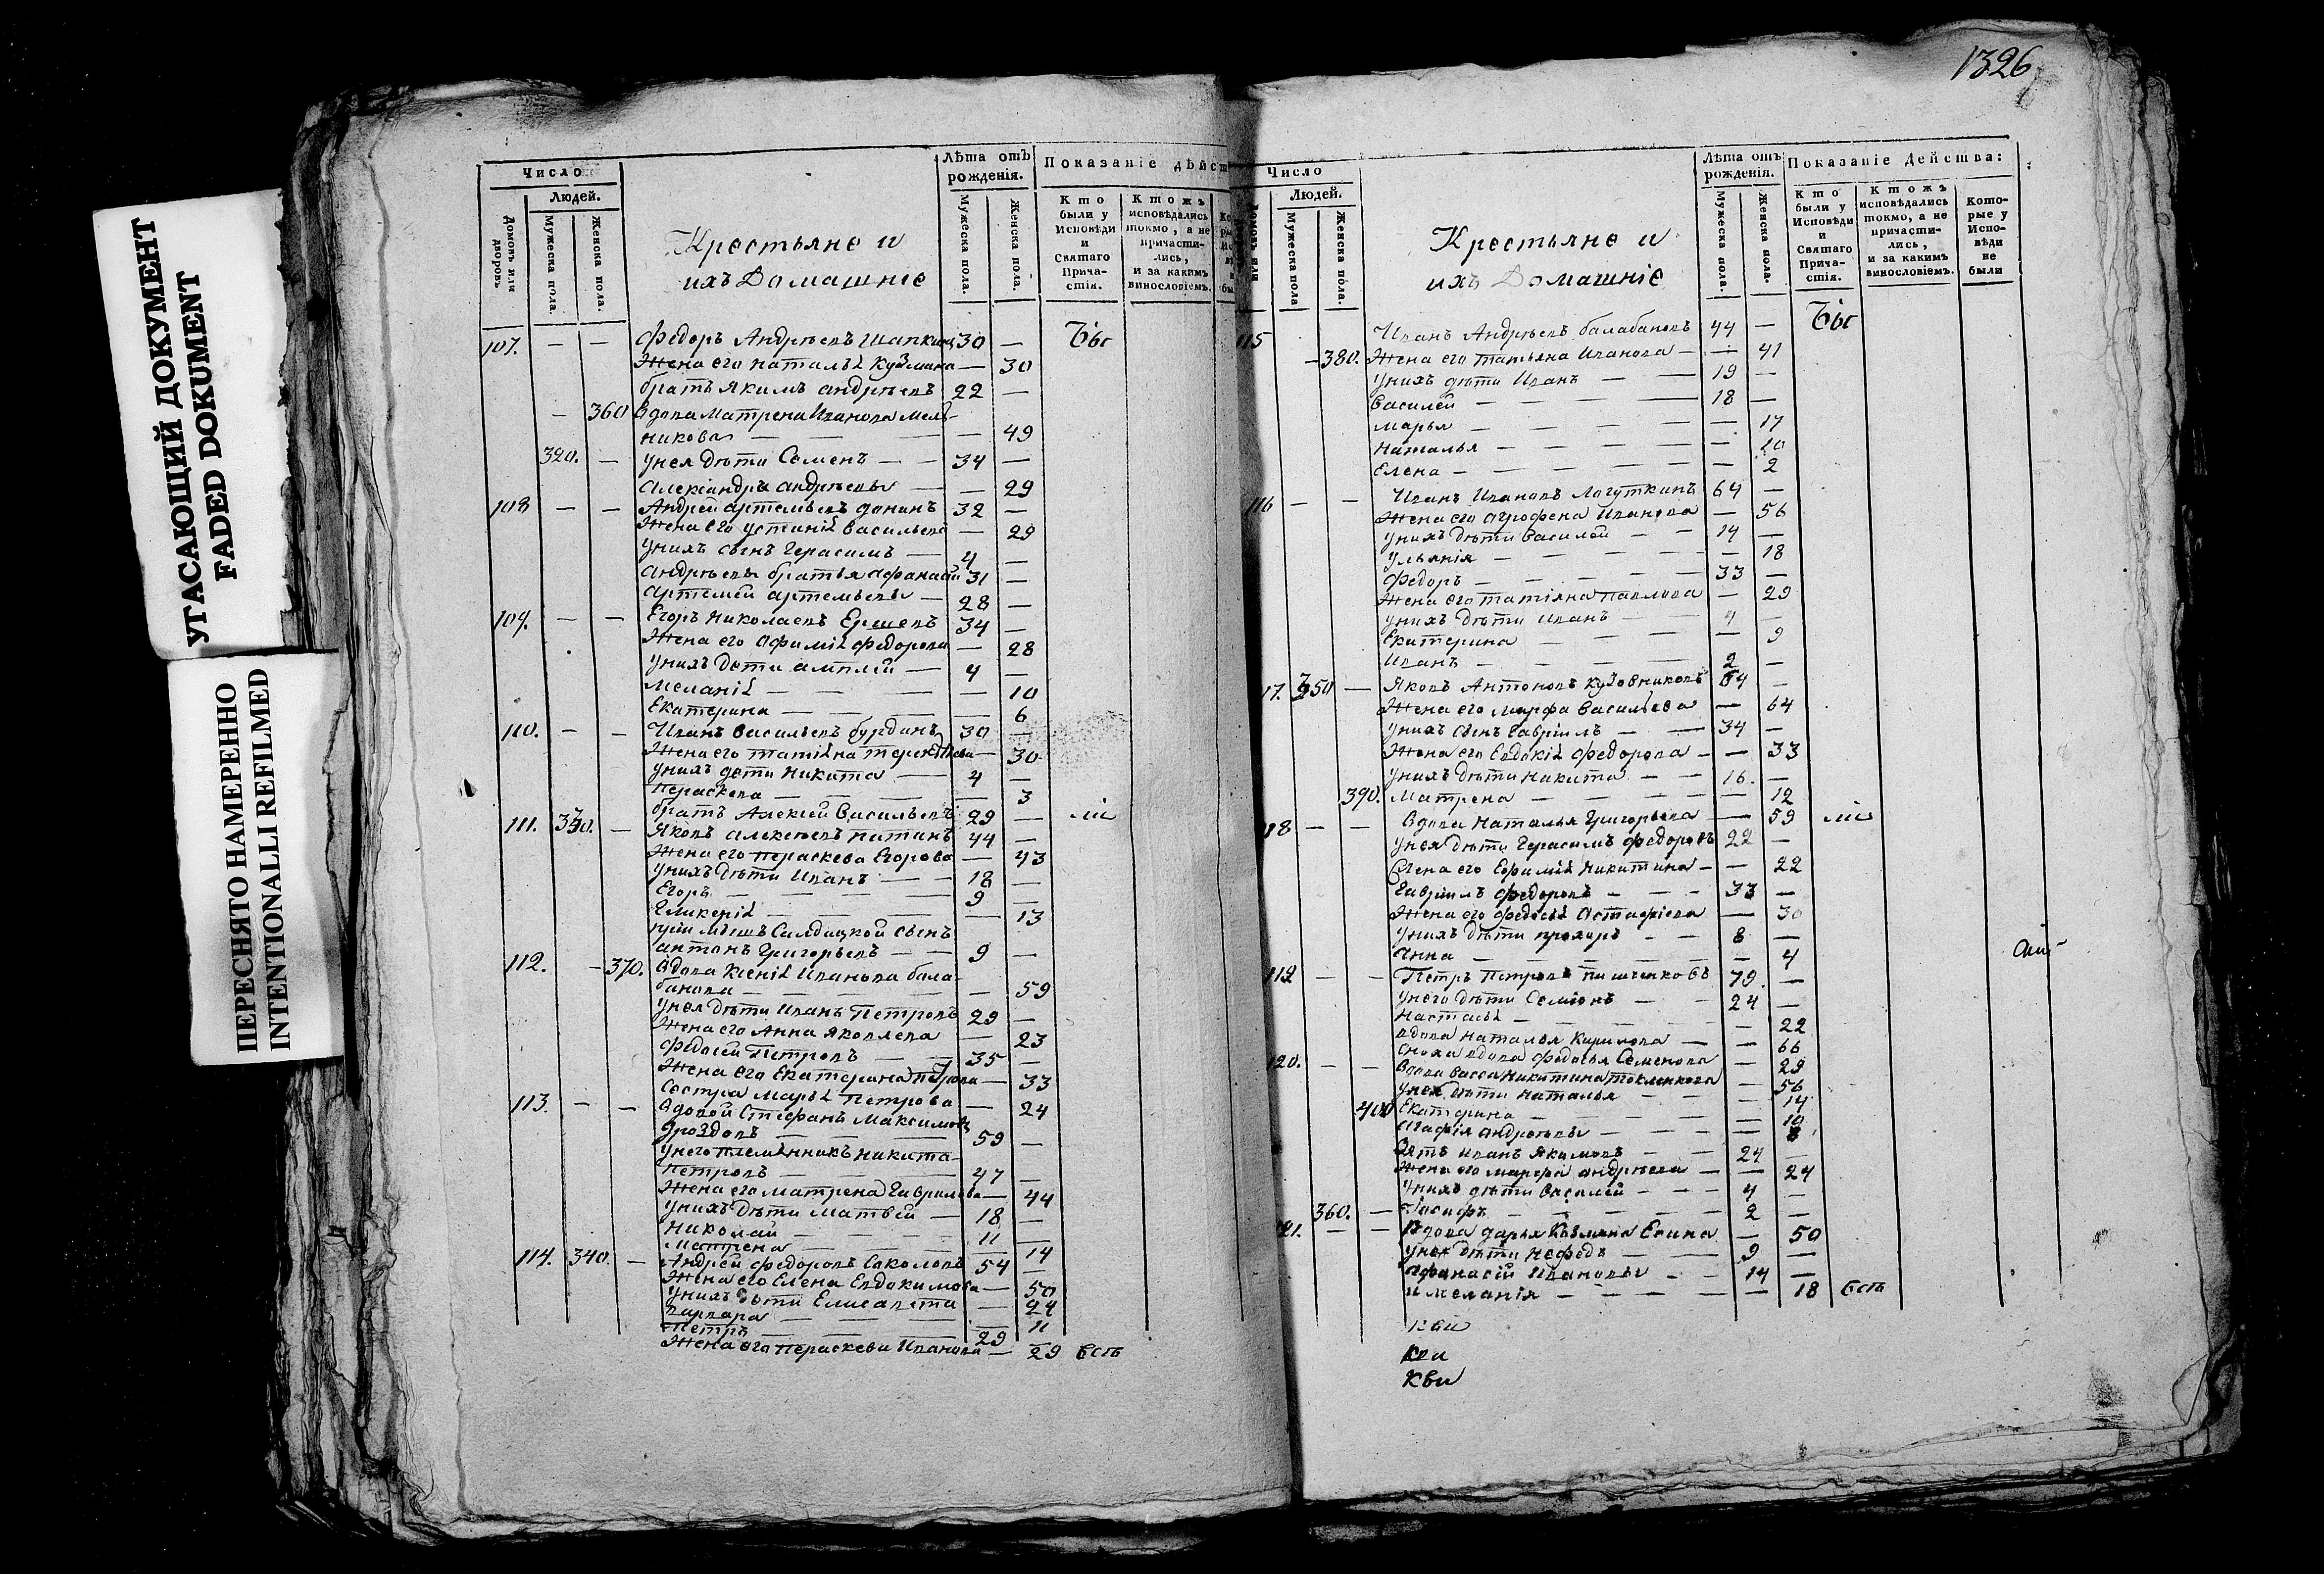 УГАСАЮЩИЙ ДОКУМЕНТ
FADED DOKUMENT
ПЕРЕСНЯТО НАМЕРЕННО
INTENTIONALLI REFILMED
Число
Людей.
Домовъ или дворовъ
Мужеска пола.
Женска пола.
Крестьяне и
ихъ Домашніе
Лѣта отъ рожденія.
Мужеска пола.
Женска пола.
Показаніе дѣйст
Кто были у Исповѣди и Святаго Причастія.
Ктожъ исповѣдались токмо, а не причастились, и за какимъ винословіемъ.
107. — — Федоръ Андрѣевъ Шапкинъ 30 — Бы
Жена его Наталья Кузмина — 30
братъ Якимъ Андрѣевъ 22 —
— 360 Вдова Матрена Иванова Мель-
никова — — 49
320. — Унея дѣти Семенъ — 34 —
Александра Андрѣевы — — 29
108 — — Андрей Артемьевъ Донинъ 32 —
Жена его Устинія Васильева — 29
Унихъ сынъ Герасимъ — 4 —
Андрѣевы братья Афанасій 31 —
Артемей Артемьевы — 28 —
109. — — Егоръ Николаевъ Ершевъ 34 —
Жена его Афимія Федорова — 28
Унихъ дѣти — 4 —
Меланія — — 10
Екатерина — — 6
110. — — Иванъ Васильевъ бурдинъ 30 —
Жена его Татіяна — 30
Унихъ дѣти Никита — 4 —
Параскева — — 3
братъ Алексей Васильевъ 29 — ли
111. 330. — Яковъ Алексѣевъ 44 —
Жена его Пераскева Егорова — 43
Унихъ дѣти Иванъ — 18 —
Егоръ — 9 —
Гликерія — — 13
Салдацкой сынъ
Антонъ Григорьевъ — 9 —
112. — 370. Вдова Ксенія Иванова бала-
банова — — 59
Унея дѣти Иванъ Петровъ 29 —
Жена его Анна Яковлева — 23
Федосей Петровъ — 35 —
Жена его Екатерина Петрова — 33
Сестра Марья Петрова — 24
113. — — Вдовой Стефанъ Максимовъ
Дроздовъ — 59 —
Унего племянникъ Никита
Петровъ — 47 —
Жена его Матрена Гаврилова — 44
Унихъ дѣти Матвей — 18 —
Николай — 11 —
Матрена — — 14
114. 340. — Андрей Федоровъ Соколовъ 54 —
Жена его Елена Евдокимова — 50
Унихъ дѣти Елисавета — 24
Варвара — — 11
Петръ — 29
Жена его Пераскева Иванова — 29 есть
1326
Число
Людей.
Домовъ или
Мужеска пола
Женска пола.
Крестьяне и
ихъ Домашніе
Лѣта отъ рожденія.
Мужеска пола.
Женска пола.
Показаніе Действа:
Кто были у Исповѣди и Святаго Причастія.
Ктожъ исповѣдались токмо, а не причастились, и за какимъ винословіемъ.
Которые у Исповѣди не были
115 Иванъ Андрѣевъ балабановъ 44 — Бы
— 380. Жена его Татьяна Иванова — 41
Унихъ дѣти Иванъ — 19 —
Василей — 18 —
Марья — — 17
Наталья — — 10
Елена — — 2
116 — — Иванъ Ивановъ Логуткинъ 64 —
Жена его Агрофена Иванова — 56
Унихъ дѣти Василей — 14 —
Ульянія — — 18
Федоръ — 33 —
Жена его Татіяна Павлова — 29
Унихъ дѣти Иванъ — 4 —
Екатерина — — 9
Иванъ — 2 —
17. 350 — Яковъ Антоновъ Кузовниковъ 64 —
Жена его Марфа Васильева — 64
Унихъ сынъ Гавріилъ — 34 —
Жена его Евдокія Федорова — 33
Унихъ дѣти Никита — 16. —
390. Матрена — — 12
18 — — Вдова Наталья Григорьева — 59 ли
Унея дѣти Герасимъ Федоровъ 22 —
Жена его Ефимія Никитина — 22
Гавріилъ Федоровъ — 33 —
Жена его Федосья Остафіева — 30
Унихъ дѣти Прохоръ — 8 —
Анна — — 4
119 — — Петръ Петровъ 79 —
Унего дѣти Семіонъ — 24 —
Настасья — — 22
вдова Наталья Кирилова — 66
Сноха вдова Федосья Семенова — 29
120. — — Вдова Васса Никитина — 56
Унея дѣти Наталья — — 14
400 Екатерина — — 10
Агафія Андрѣевы — — 8
Зять Иванъ Якимовъ — 24 —
Жена его Марфа Андрѣева — 24
Унихъ дѣти Василей — 4 —
360. — Іосифъ — 2 —
121. — — Вдова Дарья Козьмина Есина — 50
Унея дѣти Нефедъ — 9 —
Афанасій Ивановы — 14 —
и Меланія — — 18 есть
кви